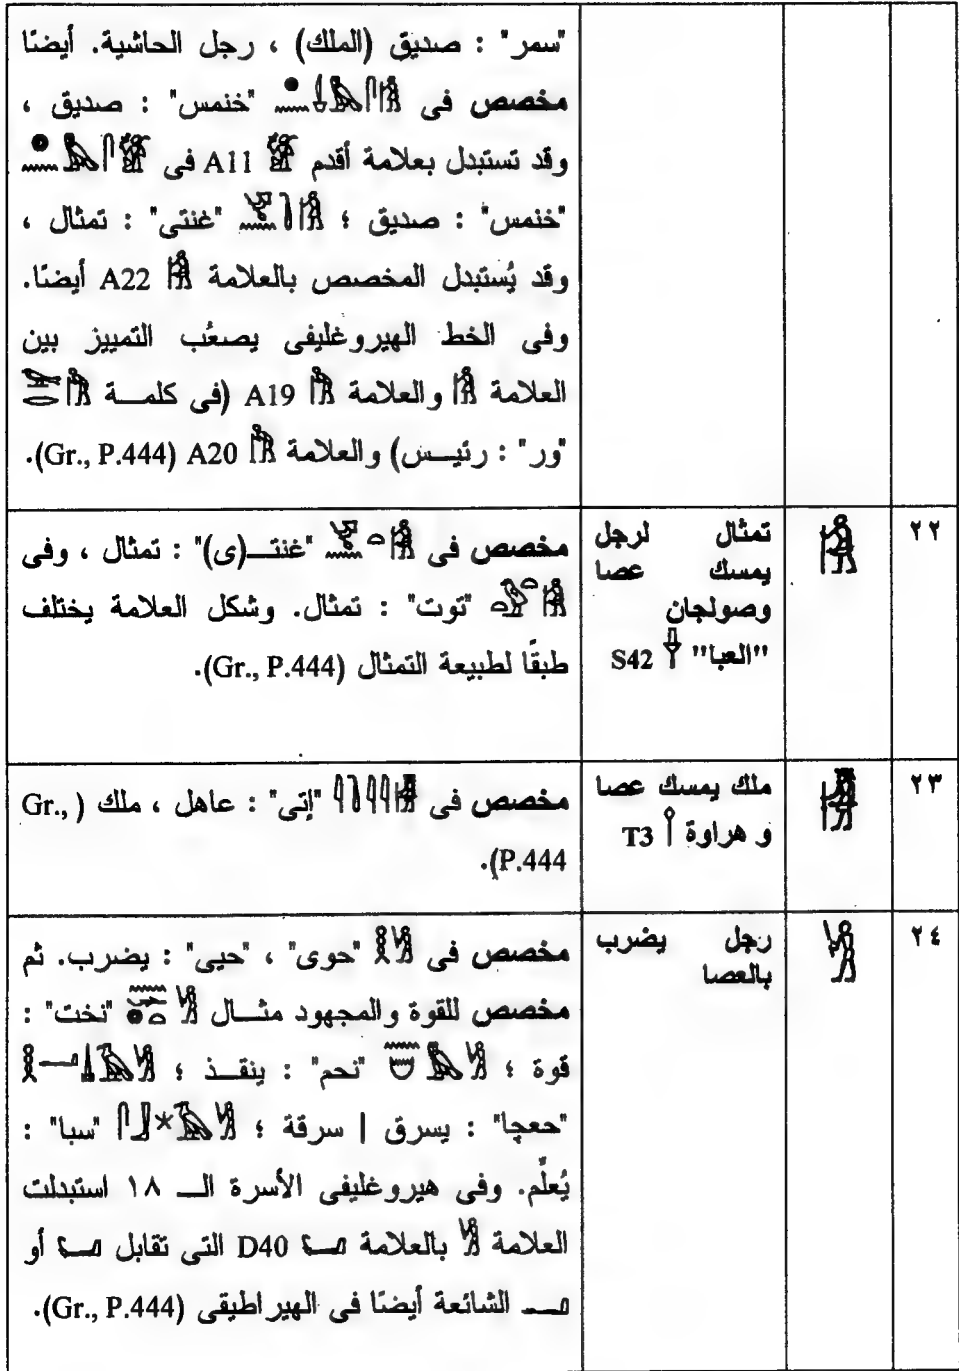 "سمر" : صديق (الملك) ، رجل الحاشية. أيضًا
مخصص فى "خنمس" : صديق ،
وقد تستبدل بعلامة أقدم A11 فى
"خنمس" : صديق ؛ "غنتى" : تمثال ،
وقد يُستبدل المخصص بالعلامة A22 أيضًا.
وفى الخط الهيروغليفى يصعُب التمييز بين
العلامة والعلامة A19 (فى كلمــة
"ور" : رئيــس) والعلامة A20 (Gr., P.444).
٢٢
تمثال لرجل
يمسك عصا
وصولجان
"العبا" S42
مخصص فى "غنتــ(ى)" : تمثال ، وفى
"توت" : تمثال. وشكل العلامة يختلف
طبقًا لطبيعة التمثال (Gr., P.444).
٢٣
ملك يمسك عصا
و هراوة T3
مخصص فى "إتى" : عاهل ، ملك (Gr.,
P.444).
٢٤
رجل يضرب
بالعصا
مخصص فى "حوى" ، "حيى" : يضرب. ثم
مخصص للقوة والمجهود مثــال "نخت" :
قوة ؛ "نحم" : ينقــذ ؛
"حعچا" : يسرق | سرقة ؛ "سبا" :
يُعلِّم. وفى هيروغليفى الأسرة الــ ١٨ استبدلت
العلامة بالعلامة D40 التى تقابل أو
الشائعة أيضًا فى الهيراطيقى (Gr., P.444).